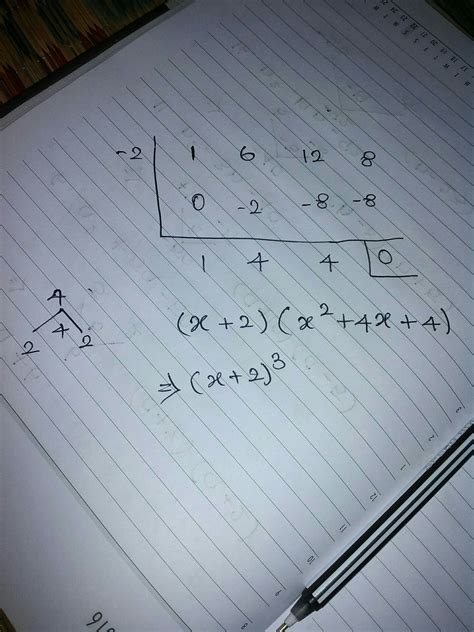 -2 | 1 6 12 8
0 -2 -8 -8
1 4 4 0
4
2 4 2
(x+2)(x²+4x+4)
⇒ (x+2)³